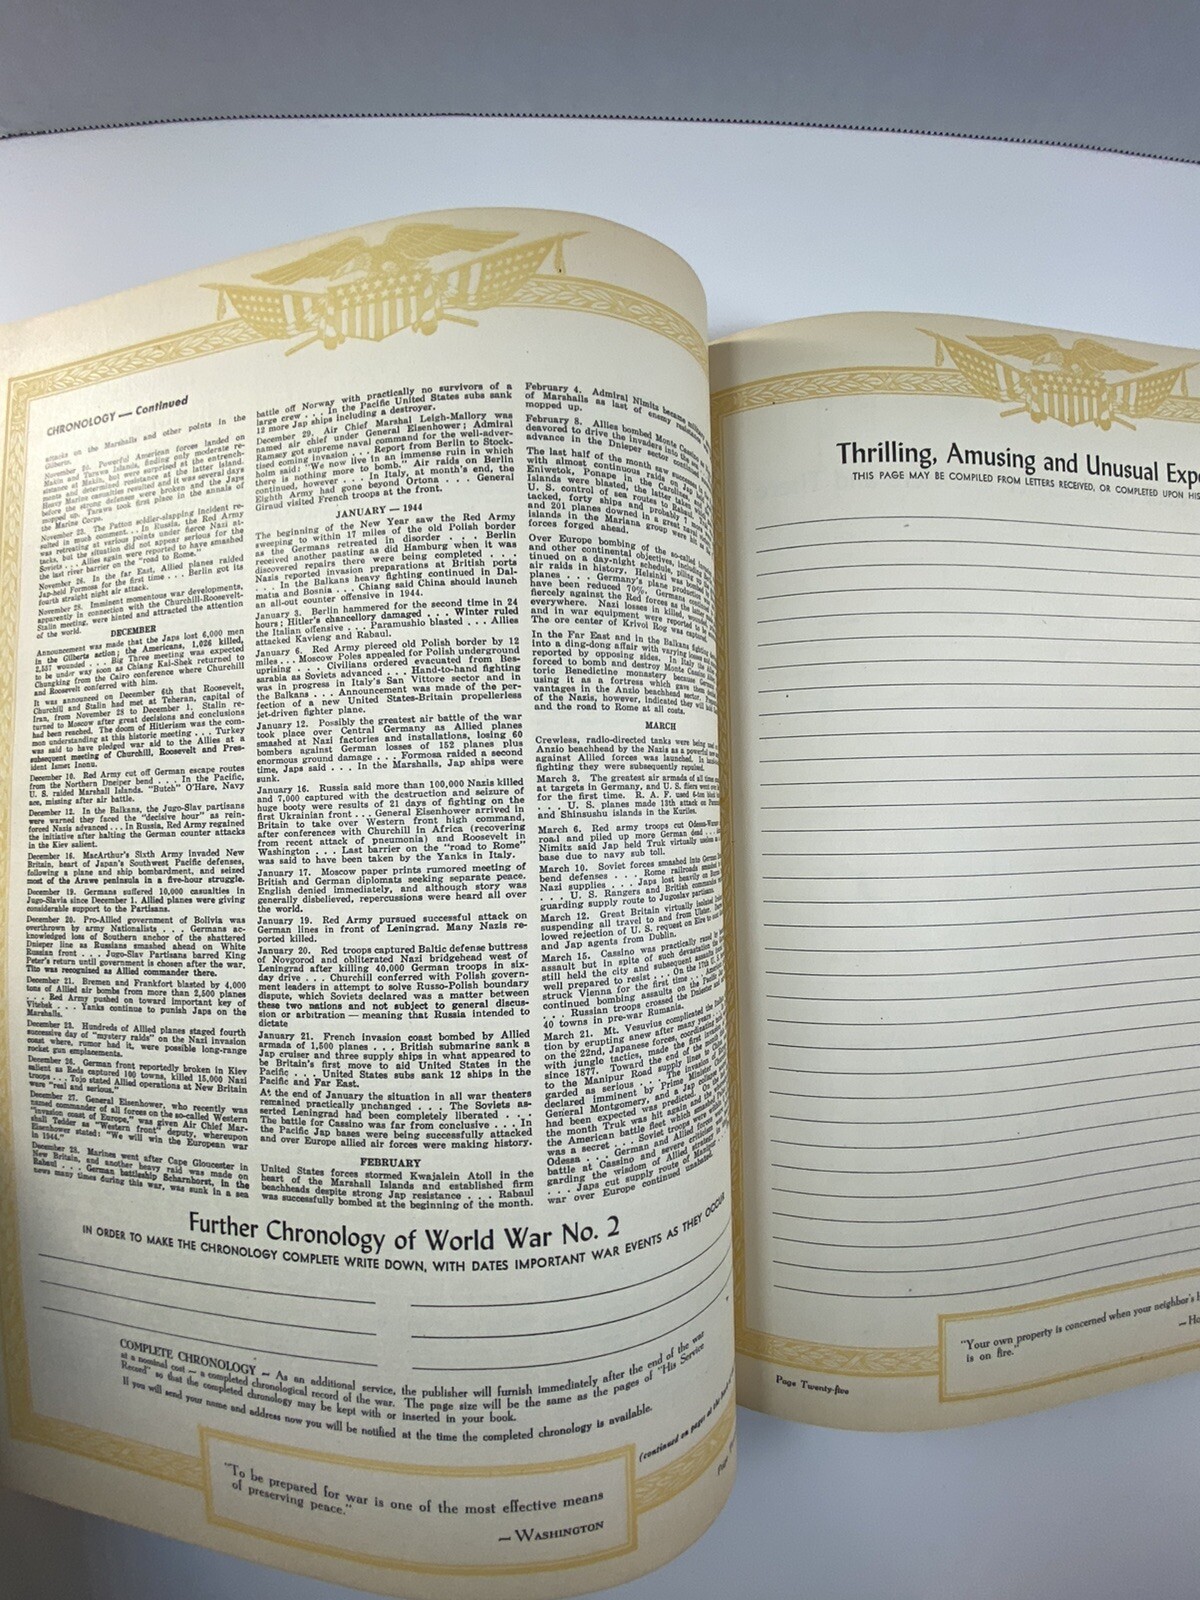 CHRONOLOGY — Continued
attacks on the Marshalls and other points in the
Gilberts.
November 20. Powerful American forces landed on
Makin and Tarawa Islands, finding only moderate re-
sistance at Makin, but were surprised at the entrench-
ments and determined resistance at the latter island.
Heavy Marine casualties resulted and it was several days
before the strong defenses were broken and the Japs
mopped up. Tarawa took first place in the annals of
the Marine Corps.
November 23. The Patton soldier-slapping incident re-
sulted in much comment . . . In Russia, the Red Army
was retreating at various points under fierce Nazi at-
tacks, but the situation did not appear serious for the
Soviets . . . Allies again were reported to have smashed
the last river barrier on the "road to Rome."
November 26. In the far East, Allied planes raided
Jap-held Formosa for the first time . . . Berlin got its
fourth straight night air attack.
November 28. Imminent momentous war developments,
apparently in connection with the Churchill-Roosevelt-
Stalin meeting, were hinted and attracted the attention
of the world.
DECEMBER
Announcement was made that the Japs lost 6,000 men
in the Gilberts action; the Americans, 1,026 killed,
2,557 wounded . . . Big Three meeting was expected
to be under way soon as Chiang Kai-Shek returned to
Chungking from the Cairo conference where Churchill
and Roosevelt conferred with him.
It was announced on December 6th that Roosevelt,
Churchill and Stalin had met at Teheran, capital of
Iran, from November 28 to December 1. Stalin re-
turned to Moscow after great decisions and conclusions
had been reached. The doom of Hitlerism was the com-
mon understanding at this historic meeting . . . Turkey
was said to have pledged war aid to the Allies at a
subsequent meeting of Churchill, Roosevelt and Pres-
ident Ismet Inonu.
December 10. Red Army cut off German escape routes
from the Northern Dneiper bend . . . In the Pacific,
U. S. raided Marshall Islands. "Butch" O'Hare, Navy
ace, missing after air battle.
December 12. In the Balkans, the Jugo-Slav partisans
were warned they faced the "decisive hour" as rein-
forced Nazis advanced . . . In Russia, Red Army regained
the initiative after halting the German counter attacks
in the Kiev salient.
December 16. MacArthur's Sixth Army invaded New
Britain, heart of Japan's Southwest Pacific defenses,
following a plane and ship bombardment, and seized
most of the Arawe peninsula in a five-hour struggle.
December 19. Germans suffered 10,000 casualties in
Jugo-Slavia since December 1. Allied planes were giving
considerable support to the Partisans.
December 20. Pro-Allied government of Bolivia was
overthrown by army Nationalists . . . Germans ac-
knowledged loss of Southern anchor of the shattered
Dnieper line as Russians smashed ahead on White
Russian front . . . Jugo-Slav Partisans barred King
Peter's return until government is chosen after the war.
Tito was recognised as Allied commander there.
December 21. Bremen and Frankfort blasted by 4,000
tons of Allied air bombs from more than 2,500 planes
. . . Red Army pushed on toward important key of
Vitebsk . . . Yanks continue to punish Japs on the
Marshalls.
December 23. Hundreds of Allied planes staged fourth
successive day of "mystery raids" on the Nazi invasion
coast where, rumor had it, were possible long-range
rocket gun emplacements.
December 26. German front reportedly broken in Kiev
salient as Reds captured 100 towns, killed 15,000 Nazi
troops . . . Tojo stated Allied operations at New Britain
were "real and serious."
December 27. General Eisenhower, who recently was
named commander of all forces on the so-called Western
"invasion coast of Europe," was given Air Chief Mar-
shall Tedder as "Western front" deputy, whereupon
Eisenhower stated: "We will win the European war
in 1944."
December 28. Marines went after Cape Gloucester in
New Britain, and another heavy raid was made on
Rabaul . . . German battleship Scharnhorst, in the
news many times during this war, was sunk in a sea
battle off Norway with practically no survivors of a
large crew . . . In the Pacific United States subs sank
12 more Jap ships including a destroyer.
December 29. Air Chief Marshal Leigh-Mallory was
named air chief under General Eisenhower; Admiral
Ramsey got supreme naval command for the well-adver-
tised coming invasion . . . Report from Berlin to Stock-
holm said: "We now live in an immense ruin in which
there is nothing more to bomb." Air raids on Berlin
continued, however . . . In Italy, at month's end, the
Eighth Army had gone beyond Ortona . . . General
Giraud visited French troops at the front.
JANUARY — 1944
The beginning of the New Year saw the Red Army
sweeping to within 17 miles of the old Polish border
as the Germans retreated in disorder . . . Berlin
received another pasting as did Hamburg when it was
discovered repairs there were being completed . . .
Nazis reported invasion preparations at British ports
. . . In the Balkans heavy fighting continued in Dal-
matia and Bosnia . . . Chiang said China should launch
an all-out counter offensive in 1944.
January 3. Berlin hammered for the second time in 24
hours; Hitler's chancellory damaged . . . Winter ruled
the Italian offensive . . . Paramushio blasted . . . Allies
attacked Kavieng and Rabaul.
January 6. Red Army pierced old Polish border by 12
miles . . . Moscow Poles appealed for Polish underground
uprising . . . Civilians ordered evacuated from Bes-
sarabia as Soviets advanced . . . Hand-to-hand fighting
was in progress in Italy's San Vittore sector and in
the Balkans . . . Announcement was made of the per-
fection of a new United States-Britain propellerless
jet-driven fighter plane.
January 12. Possibly the greatest air battle of the war
took place over Central Germany as Allied planes
smashed at Nazi factories and installations, losing 60
bombers against German losses of 152 planes plus
enormous ground damage . . . Formosa raided a second
time, Japs said . . . In the Marshalls, Jap ships were
sunk.
January 16. Russia said more than 100,000 Nazis killed
and 7,000 captured with the destruction and seizure of
huge booty were results of 21 days of fighting on the
first Ukrainian front . . . General Eisenhower arrived in
Britain to take over Western front high command,
after conferences with Churchill in Africa (recovering
from recent attack of pneumonia) and Roosevelt in
Washington . . . Last barrier on the "road to Rome"
was said to have been taken by the Yanks in Italy.
January 17. Moscow paper prints rumored meeting of
British and German diplomats seeking separate peace.
English denied immediately, and although story was
generally disbelieved, repercussions were heard all over
the world.
January 19. Red Army pursued successful attack on
German lines in front of Leningrad. Many Nazis re-
ported killed.
January 20. Red troops captured Baltic defense buttress
of Novgorod and obliterated Nazi bridgehead west of
Leningrad after killing 40,000 German troops in six-
day drive . . . Churchill conferred with Polish govern-
ment leaders in attempt to solve Russo-Polish boundary
dispute, which Soviets declared was a matter between
these two nations and not subject to general discus-
sion or arbitration — meaning that Russia intended to
dictate
January 21. French invasion coast bombed by Allied
armada of 1,500 planes . . . British submarine sank a
Jap cruiser and three supply ships in what appeared to
be Britain's first move to aid United States in the
Pacific . . . United States subs sank 12 ships in the
Pacific and Far East.
At the end of January the situation in all war theaters
remained practically unchanged . . . The Soviets as-
serted Leningrad had been completely liberated . . .
The battle for Cassino was far from conclusive . . . In
the Pacific Jap bases were being successfully attacked
and over Europe allied air forces were making history.
FEBRUARY
United States forces stormed Kwajalein Atoll in the
heart of the Marshall Islands and established firm
beachheads despite strong Jap resistance . . . Rabaul
was successfully bombed at the beginning of the month.
February 4. Admiral Nimitz became
of Marshalls as last of enemy resistance
mopped up.
February 8. Allies bombed Monte
deavored to drive the invaders into the
advance in the Dnieper sector
The last half of the month saw
with almost continuous raids on
Eniwetok, Ponape in the Carolines,
Islands were blasted, the latter
U. S. control of sea routes to Rabaul.
tacked, forty ships and probably
and 201 planes downed in a great naval
islands in the Mariana group were hit as the
forces forged ahead.
Over Europe bombing of the so-called
and other continental objectives,
tinued on a day-night schedule, piling
air raids in history. Helsinki was
planes . . . Germany's plane production
have been reduced 70%. Germans
fiercely against the Red forces as the
everywhere. Nazi losses in killed,
and in war equipment were reported to
The ore center of Krivoi Rog was captured
In the Far East and in the Balkans fighting
into a ding-dong affair with varying losses
reported by opposing sides. In Italy
forced to bomb and destroy Monte Cassino
toric Benedictine monastery because
using it as a fortress which gave them
vantages in the Anzio beachhead sector.
of the Nazis, however, indicated they will hold
and the road to Rome at all costs.
MARCH
Crewless, radio-directed tanks were being used
Anzio beachhead by the Nazis as a powerful
against Allied forces was launched. In
fighting they were subsequently repulsed.
March 3. The greatest air armada of all time
at targets in Germany, and U. S. fliers went over
for the first time. R. A. F. used 6-ton
. . . U. S. planes made 13th attack on
and Shinsushu islands in the Kuriles.
March 6. Red army troops cut Odessa-Warsaw
road and piled up more German dead . . .
Nimitz said Jap held Truk virtually useless as
base due to navy sub toll.
March 10. Soviet forces smashed into German
bend defenses . . . Rome railroads smashed
Nazi supplies . . . Japs lost heavily on
. . . U. S. Rangers and British commandos
guarding supply route to Jugoslav partisans.
March 12. Great Britain virtually isolated
suspending all travel to and from Ulster.
lowed rejection of U. S. request on Eire to
and Jap agents from Dublin.
March 15. Cassino was practically razed by
assault but in spite of such devastation
still held the city and subsequent assaults
well prepared to resist . . . On the 17th U. S.
struck Vienna for the first time . . . American
continued bombing assaults on the Pacific
. . . Russian troops crossed the Dniester and
40 towns in pre-war Rumania.
March 21. Mt. Vesuvius complicated the
tion by erupting anew after many years
on the 22nd, Japanese forces, coordinating
with jungle tactics, made the first
since 1877. Toward the end of the month
to the Manipur Road supply lines to
garded as serious . . . The invasion
declared imminent by Prime Minister
General Montgomery, and a Jap collapse
had been expected was predicted. On the
the month Truk was hit again and the
the American battle fleet which smashed
was a secret . . . Soviet troops smashed
Odessa . . . German and Allied forces
battle at Cassino and severe criticism
garding the wisdom of Allied strategy
. . . Japs cut supply route of Manipur
war over Europe continued unabated.
Further Chronology of World War No. 2
IN ORDER TO MAKE THE CHRONOLOGY COMPLETE WRITE DOWN, WITH DATES IMPORTANT WAR EVENTS AS THEY OCCUR
COMPLETE CHRONOLOGY — As an additional service, the publisher will furnish immediately after the end of the war
at a nominal cost — a completed chronological record of the war. The page size will be the same as the pages of "His Service
Record" so that the completed chronology may be kept with or inserted in your book.
If you will send your name and address now you will be notified at the time the completed chronology is available.
(continued on pages at the
"To be prepared for war is one of the most effective means
of preserving peace."
— WASHINGTON
Thrilling, Amusing and Unusual Expe
THIS PAGE MAY BE COMPILED FROM LETTERS RECEIVED, OR COMPLETED UPON HIS
"Your own property is concerned when your neighbor's
is on fire."
— Ho
Page Twenty-five